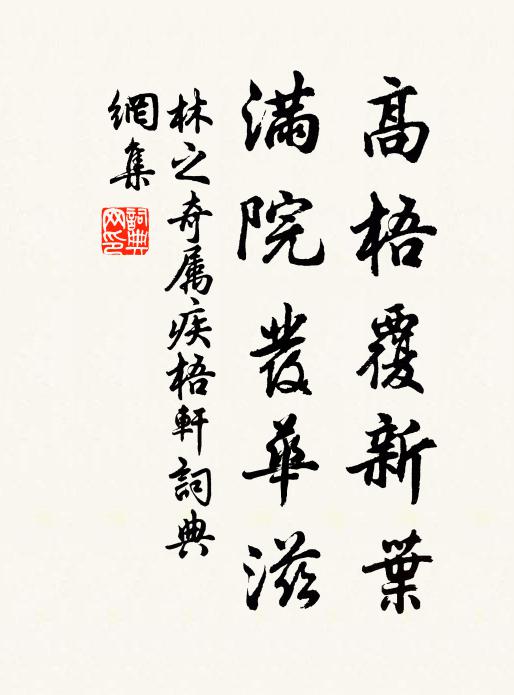 高梧覆新葉
滿院發華滋
林之奇屬疾梧軒詞典
網集
詞典網印